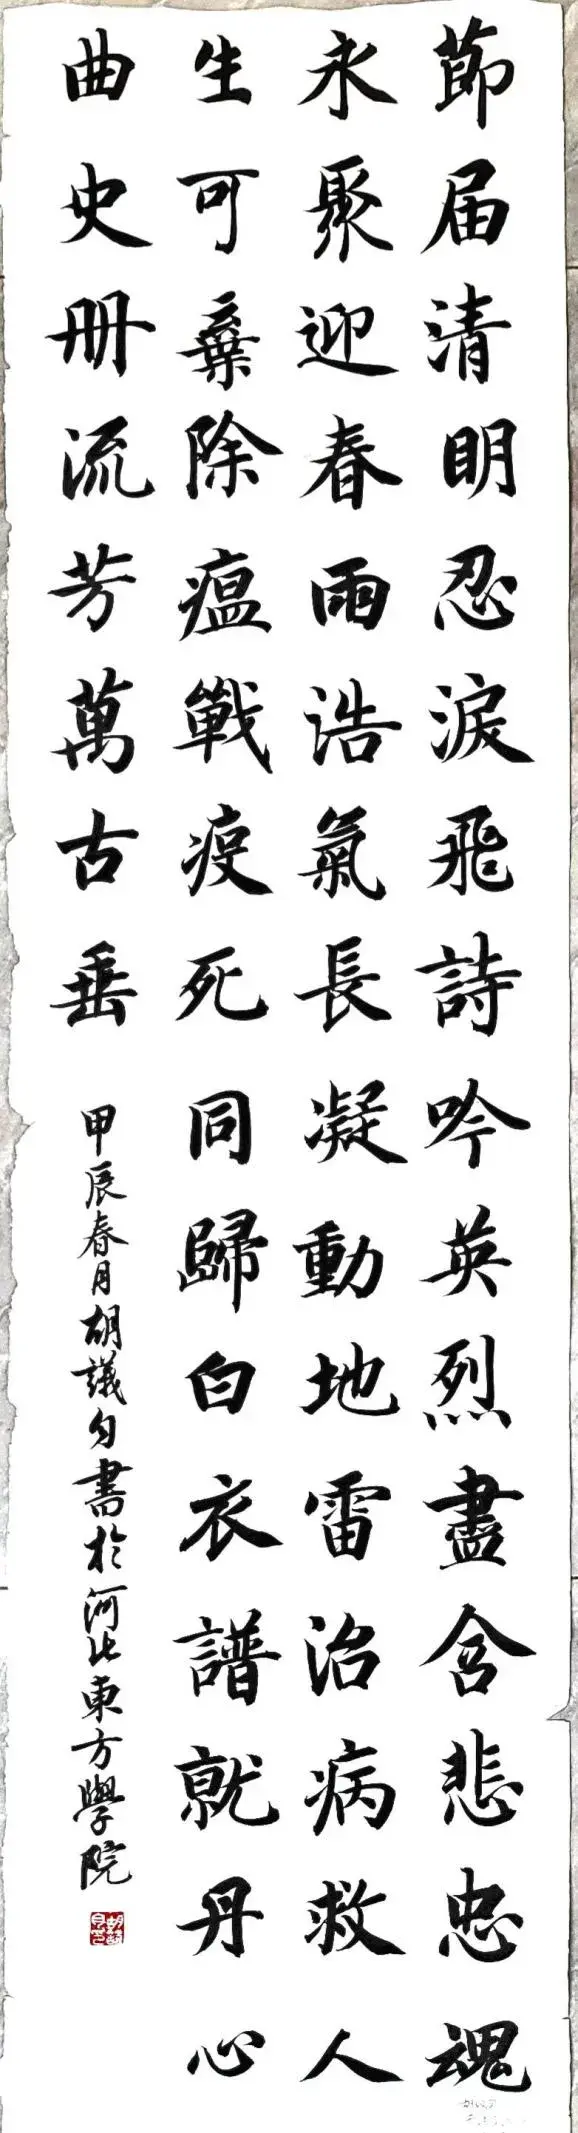 節届清明忍淚飛詩吟英烈盡含悲忠魂
永聚迎春雨浩氣長凝動地雷治病救人
生可棄除瘟戰疫死同歸白衣譜就丹心
曲史册流芳萬古垂
甲辰春月胡議匀書於河北東方學院